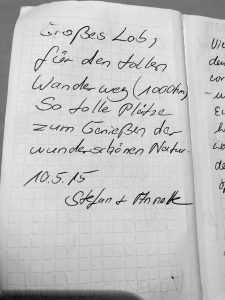 Großes Lob,
für den tollen
Wanderweg (1000km)
So tolle Plätze
zum Genießen der
wunderschönen Natur.
10.5.15
Stefan + Annette